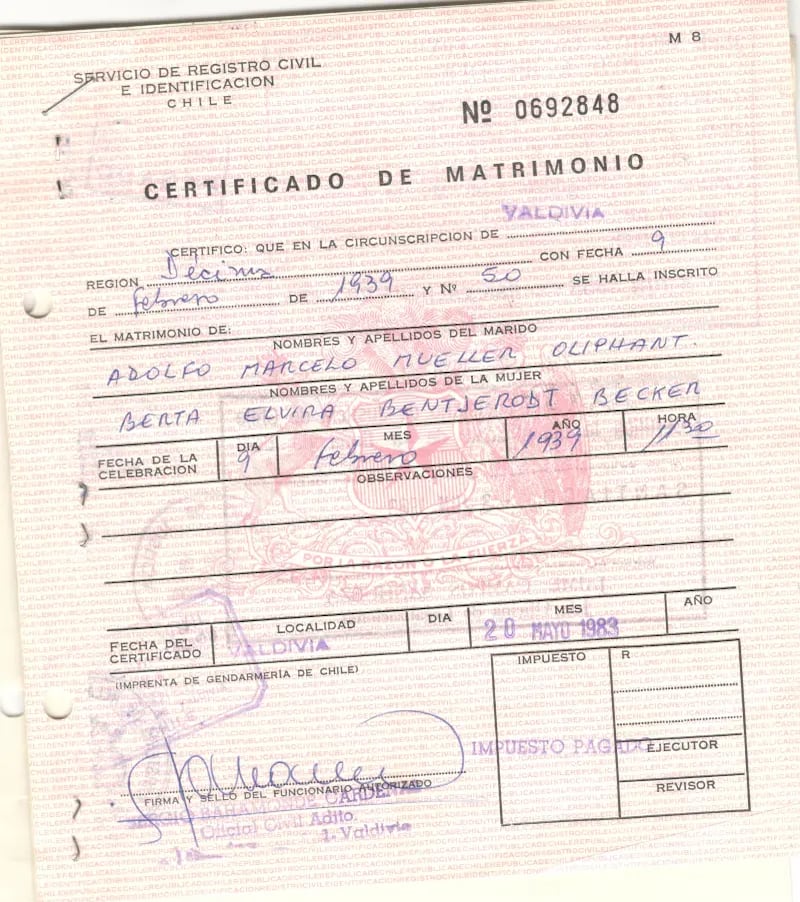 M 8
SERVICIO DE REGISTRO CIVIL
E IDENTIFICACION
CHILE
Nº 0692848
CERTIFICADO DE MATRIMONIO
VALDIVIA
CERTIFICO: QUE EN LA CIRCUNSCRIPCION DE
REGION Decima CON FECHA 9
DE febrero DE 1939 Y Nº 50 SE HALLA INSCRITO
EL MATRIMONIO DE:
NOMBRES Y APELLIDOS DEL MARIDO
ADOLFO MARCELO MUELLER OLIPHANT.
NOMBRES Y APELLIDOS DE LA MUJER
BERTA ELVIRA BENTJERODT BECKER
FECHA DE LA CELEBRACION DIA 9 MES febrero AÑO 1939 HORA 1130
OBSERVACIONES
POR LA RAZON O LA FUERZA
FECHA DEL CERTIFICADO LOCALIDAD VALDIVIA DIA MES AÑO
20 MAYO 1983
(IMPRENTA DE GENDARMERIA DE CHILE)
IMPUESTO R
IMPUESTO PAGADO
EJECUTOR
REVISOR
FIRMA Y SELLO DEL FUNCIONARIO AUTORIZADO
CARDENAS
Oficial Civil Adjto.
Valdivia